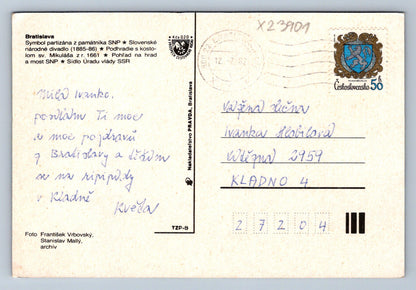 Bratislava
Symbol partizána z pamätníka SNP ★ Slovenské
národné divadlo (1885-86) ★ Podhradie s kosto-
lom sv. Mikuláša z r. 1661 ★ Pohľad na hrad
a most SNP ★ Sídlo Úradu vlády SSR
X23901
12.-7.82
Československo 50 h
Milá Ivanko,
posílám Ti moc
a moc pozdravů
z Bratislavy a těším
se na
v Kladně
Květa
Vážená slečna
Ivanka Hlobilová
Vítězná 2959
KLADNO 4
27204
Nakladateľstvo PRAVDA, Bratislava
TZP-B
Foto František Vrbovský,
Stanislav Mallý,
archív